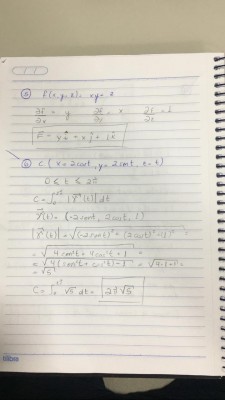 a) f(x,y,z) = xy - z
∂f/∂x = y ∂f/∂y = x ∂f/∂z
b) C (x = 2cost, y = 2sent, z = t)
0 ≤ t ≤ 2π
C = ∫₀²π |r'(t)| dt
r'(t) = (-2sent, 2cost, 1)
|r'(t)| = √((-2sent)² + (2cost)² + (1)²
= √(4sen²t + 4cos²t + 1) =
= √(4(sen²t + cos²t) + 1) = √(4·1+1) =
= √5
C = ∫₀²π √5 dt = 2π√5